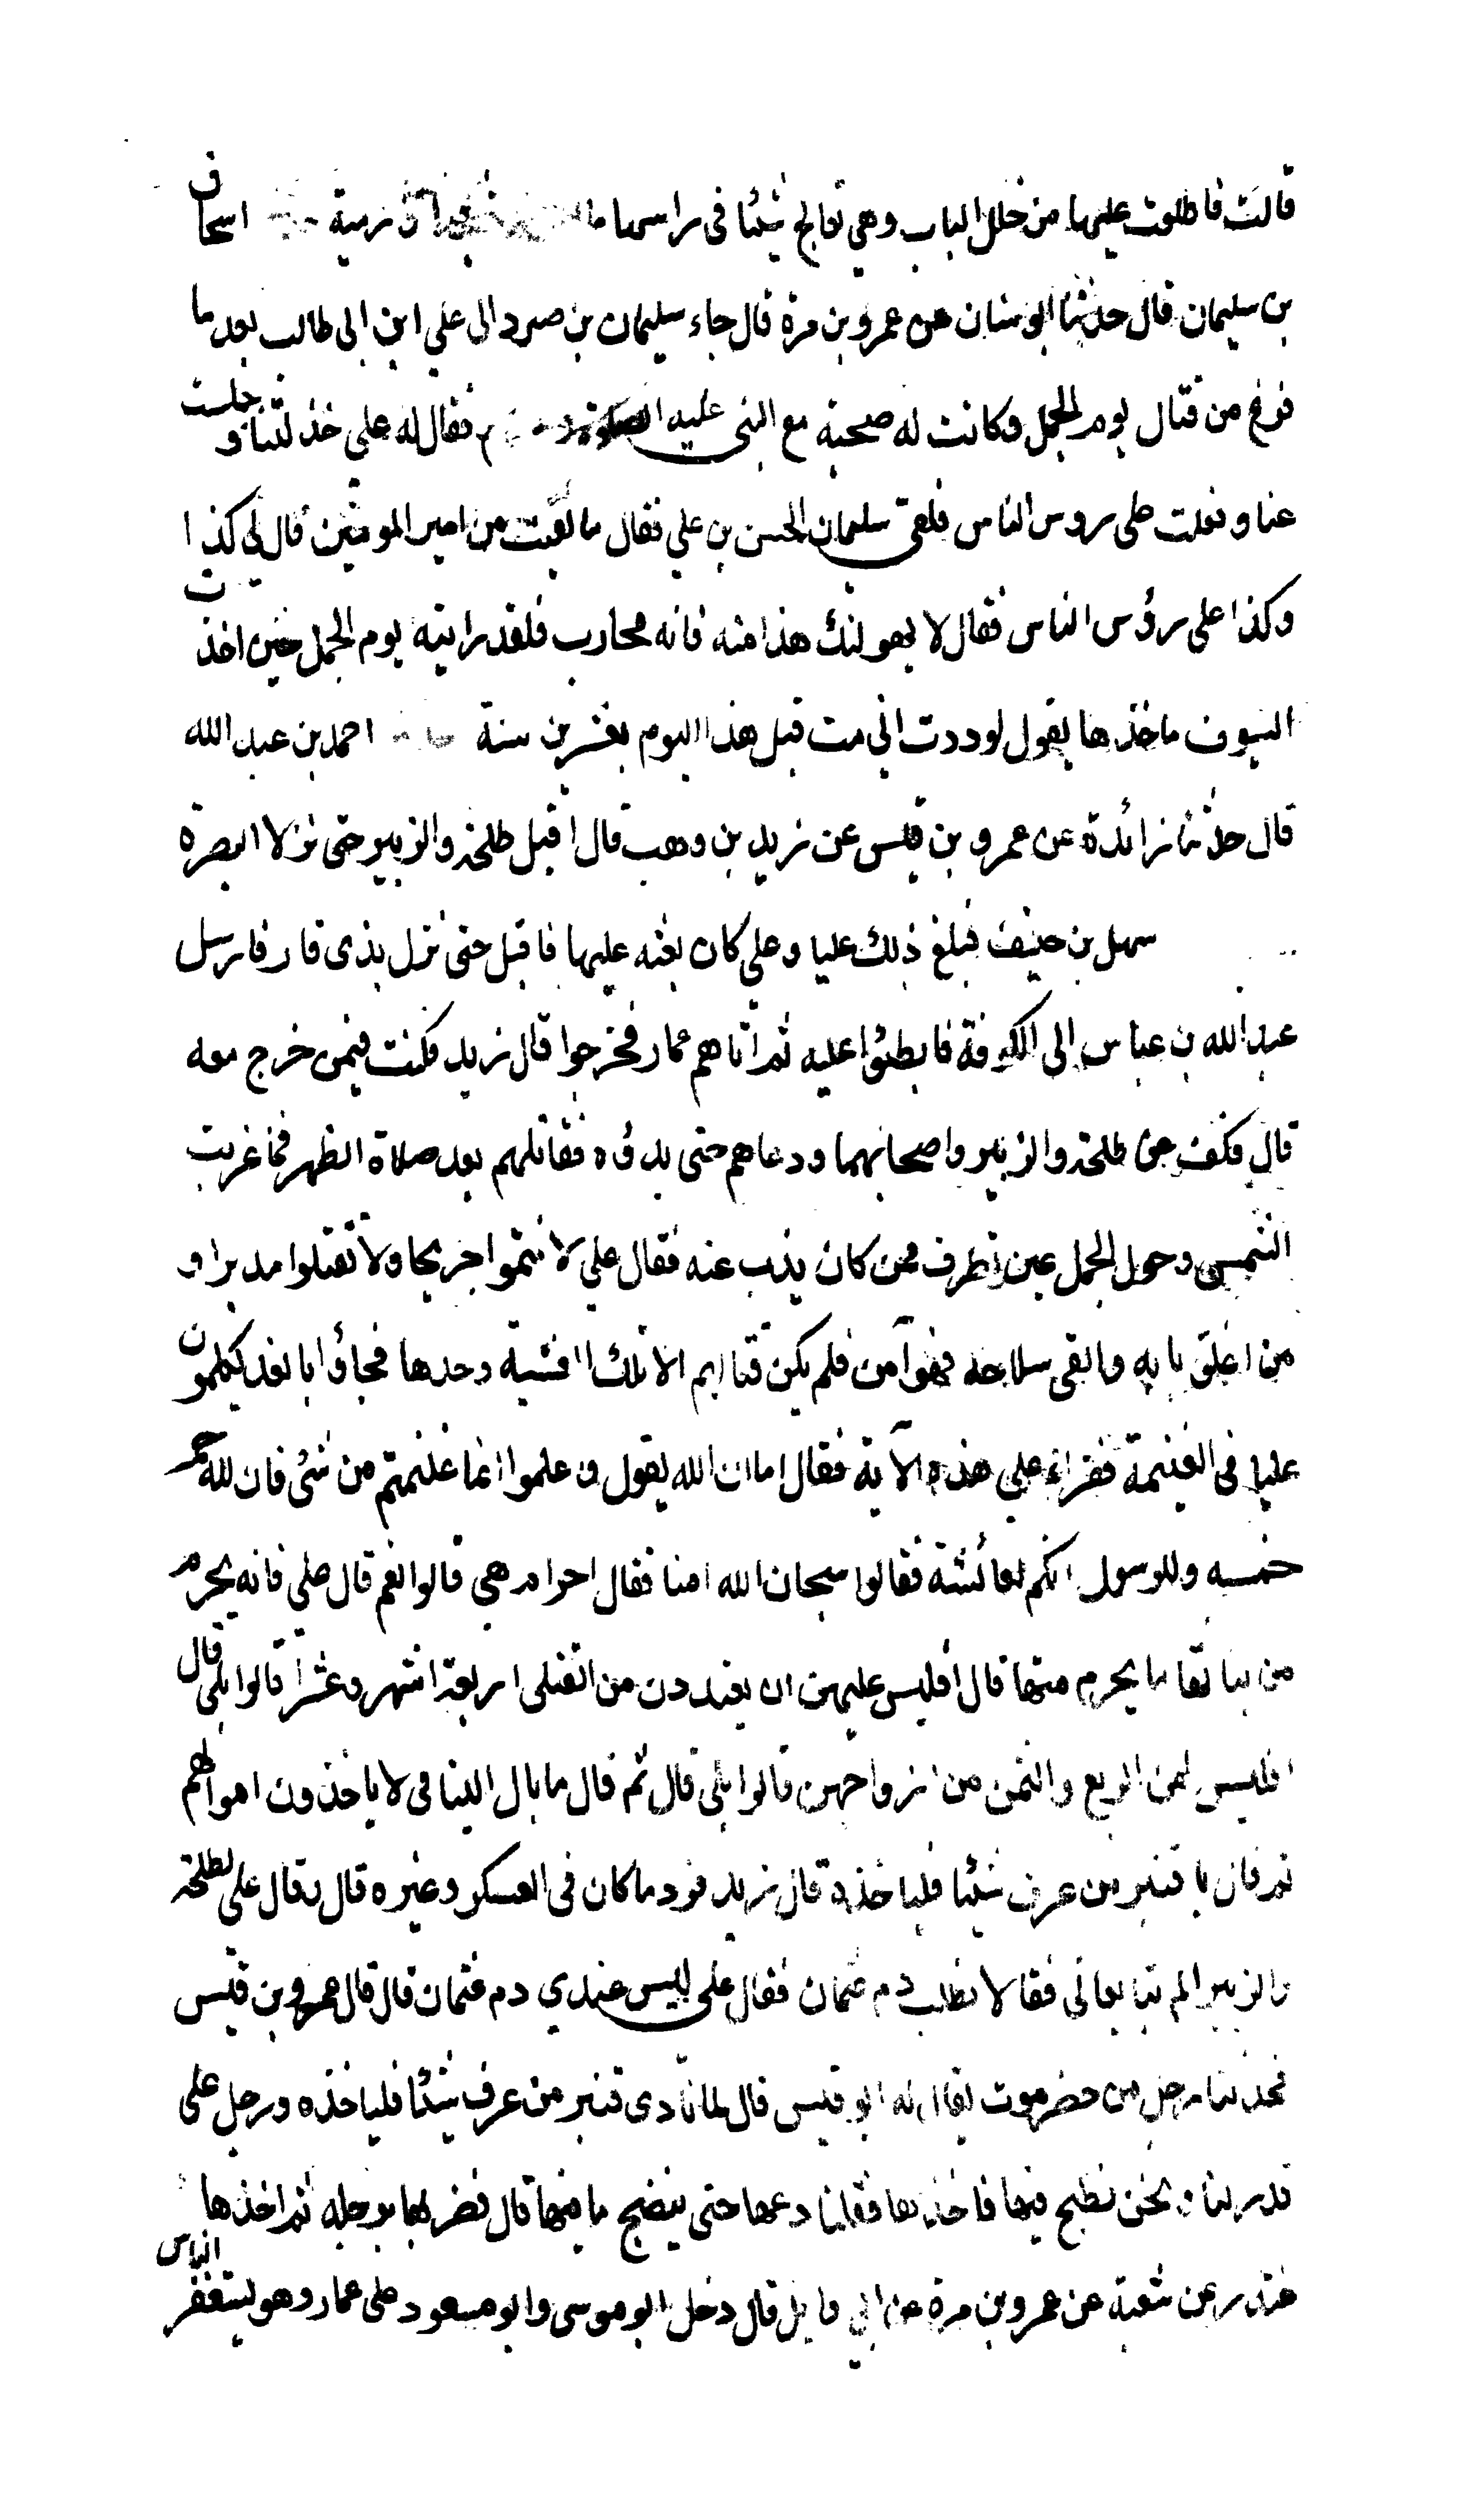 قالت فاطلعت عليها من خلل الباب وهي تعالج شيئا في راسها اسحاق
بن سليمان قال حدثنا ابو سنان عن عمرو بن مرة قال جاء سليمان بن صرد الى علي ابن ابي طالب بعد ما
فرغ من قتال يوم الجمل وكانت له صحبة مع النبي عليه الصلوة فقال له علي خذلتنا وجلست
عنا وفعلت على روس الناس فلقى سليمان الحسن بن علي فقال ما لقيت من امير المومنين قال لي كذا
وكذا على رؤس الناس فقال لا يهولنك هذا منه فانه محارب فلقد رايته يوم الجمل حين اخذت
السيوف ماخذها يقول لوددت اني مت قبل هذا اليوم بعشرين سنة احمد بن عبد الله
قال حدثنا زائدة عن عمرو بن قيس عن زيد بن وهب قال اقبل طلحة والزبير حتى نزلا البصرة
سهل بن حنيف فبلغ ذلك عليا وعلي كان بعثه عليها فاقبل حتى نزل بذي قار فارسل
عبد الله بن عباس الى الكوفة فابطئوا عليه ثم اتاهم عمار فخرجوا قال زيد فكنت فيمن خرج معه
قال فكف عن طلحة والزبير واصحابهما ودعاهم حتى بدؤه فقاتلهم بعد صلاة الظهر فما غربت
الشمس وحول الجمل عين تطرف ممن كان يذب عنه فقال علي لا تتموا جريحا ولا تقتلوا مدبرا و
من اغلق بابه والقى سلاحه فهو آمن فلم يكن قتالهم الا تلك العشية وحدها فجاؤا بالغد يكلمون
عليا في الغنيمة فقراء علي هذه الآية فقال اما ان الله يقول واعلموا انما غنمتم من شئ فان لله
خمسه وللرسول ايكم لعائشة فقالوا سبحان الله امنا فقال احرام هي قالوا نعم قال علي فانه يحرم
من بناتها ما يحرم منها قال افليس عليهن ان يعتددن من القتلى اربعة اشهر وعشرا قالوا بلى قال
افليس لهن الربع والثمن من ازواجهن قالوا بلى قال ثم قال ما بال اليتامى لا ياخذون اموالهم
ثم قال يا قنبر من عرف شيئا فلياخذه قال زيد فرد ما كان في العسكر وغيره قال وقال علي لطلحة
والزبير الم تبايعاني فقالا نطلب دم عثمان فقال علي ليس عندي دم عثمان قال قال عمرو بن قيس
فحدثنا رجل من حضرموت يقال له ابو قيس قال لما نادى قنبر من عرف شيئا فلياخذه ورجل على
قدر لنا ونحن نطبخ فيها فاخذها فقلنا دعها حتى ينضج ما فيها قال فضربها برجله ثم اخذها
غندر عن شعبة عن عمرو بن مرة عن ابي وايل قال دخل ابو موسى وابو مسعود على عمار وهو يستنفر الناس